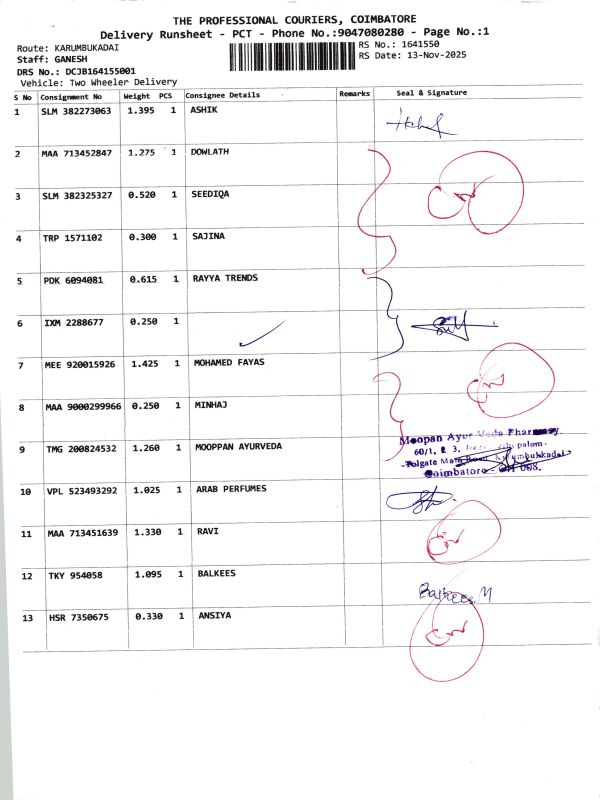 THE PROFESSIONAL COURIERS, COIMBATORE
Delivery Runsheet - PCT - Phone No.:9047080280 - Page No.:1
Route: KARUMBUKADAI RS No.: 1641550
Staff: GANESH RS Date: 13-Nov-2025
DRS No.: DCJB164155001
Vehicle: Two Wheeler Delivery
S No Consignment No Weight PCS Consignee Details Remarks Seal & Signature
1 SLM 382273063 1.395 1 ASHIK
2 MAA 713452847 1.275 1 DOWLATH
3 SLM 382325327 0.520 1 SEEDIQA
4 TRP 1571102 0.300 1 SAJINA
5 PDK 6094081 0.615 1 RAYYA TRENDS
6 IXM 2288677 0.250 1
7 MEE 920015926 1.425 1 MOHAMED FAYAS
8 MAA 9000299966 0.250 1 MINHAJ
Moopan Ayur Veda Pharmacy
9 TMG 200824532 1.260 1 MOOPPAN AYURVEDA
60/1, 3,
Tolgate Main Road, Karumbukkadai
Coimbatore - 641 008.
10 VPL 523493292 1.025 1 ARAB PERFUMES
11 MAA 713451639 1.330 1 RAVI
12 TKY 954058 1.095 1 BALKEES
Balkees.M
13 HSR 7350675 0.330 1 ANSIYA